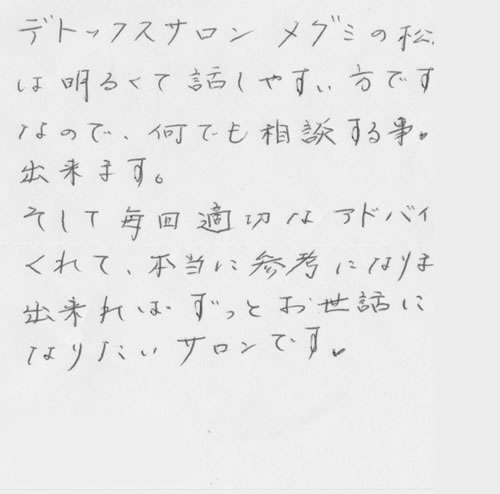 デトックスサロン メグミの松
は明るくて話しやすい方です
なので、何でも相談する事。
出来ます。
そして毎回適切なアドバイ
くれて、本当に参考になりま
出来ればずっとお世話に
なりたいサロンです。